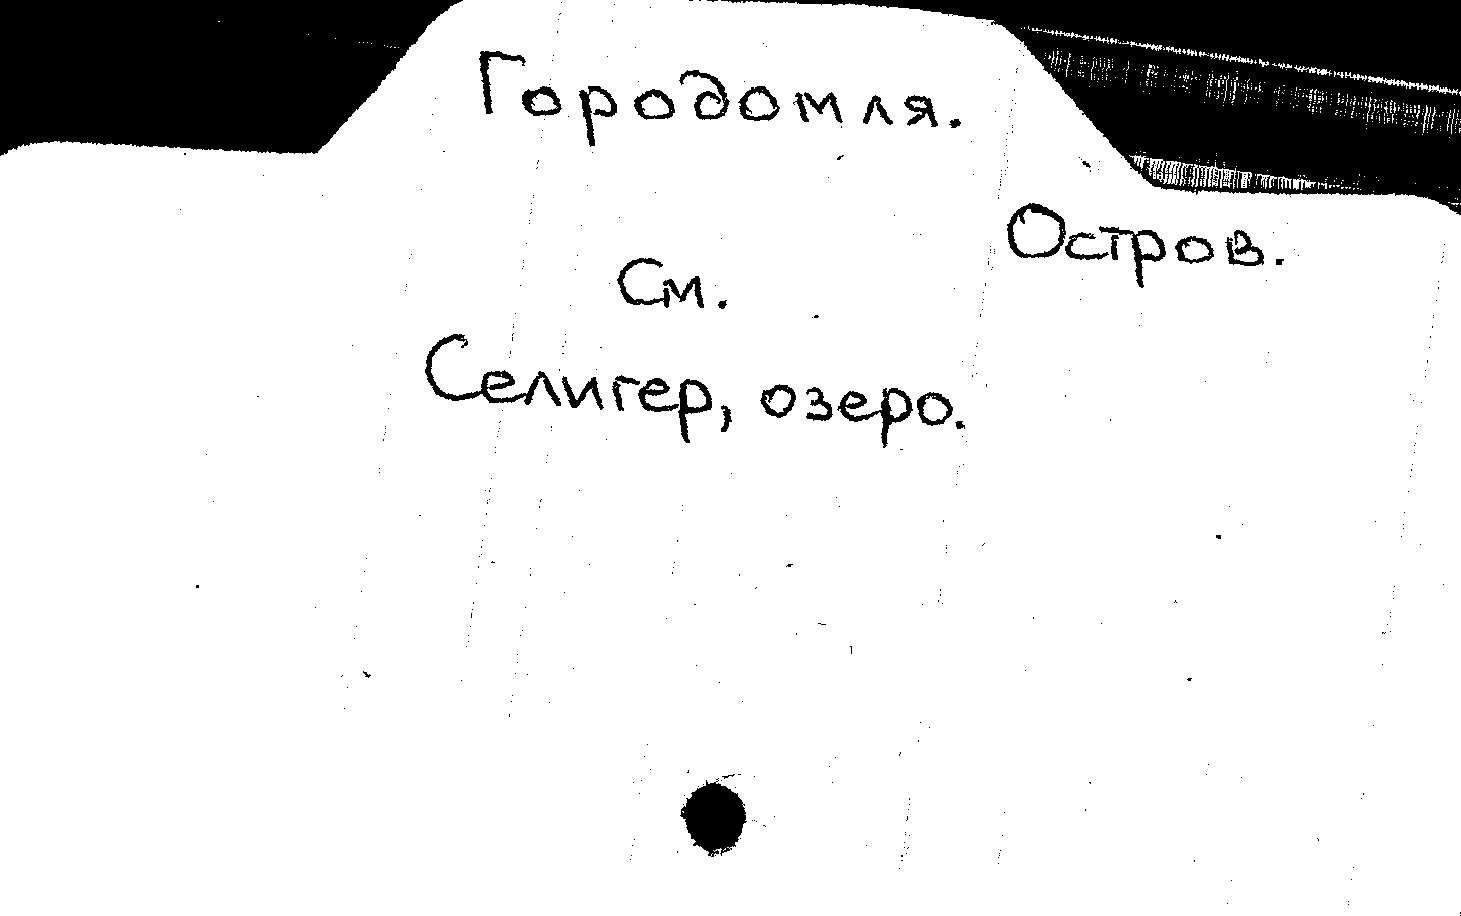 Городомля.
Остров.
См.
Селигер, озеро.